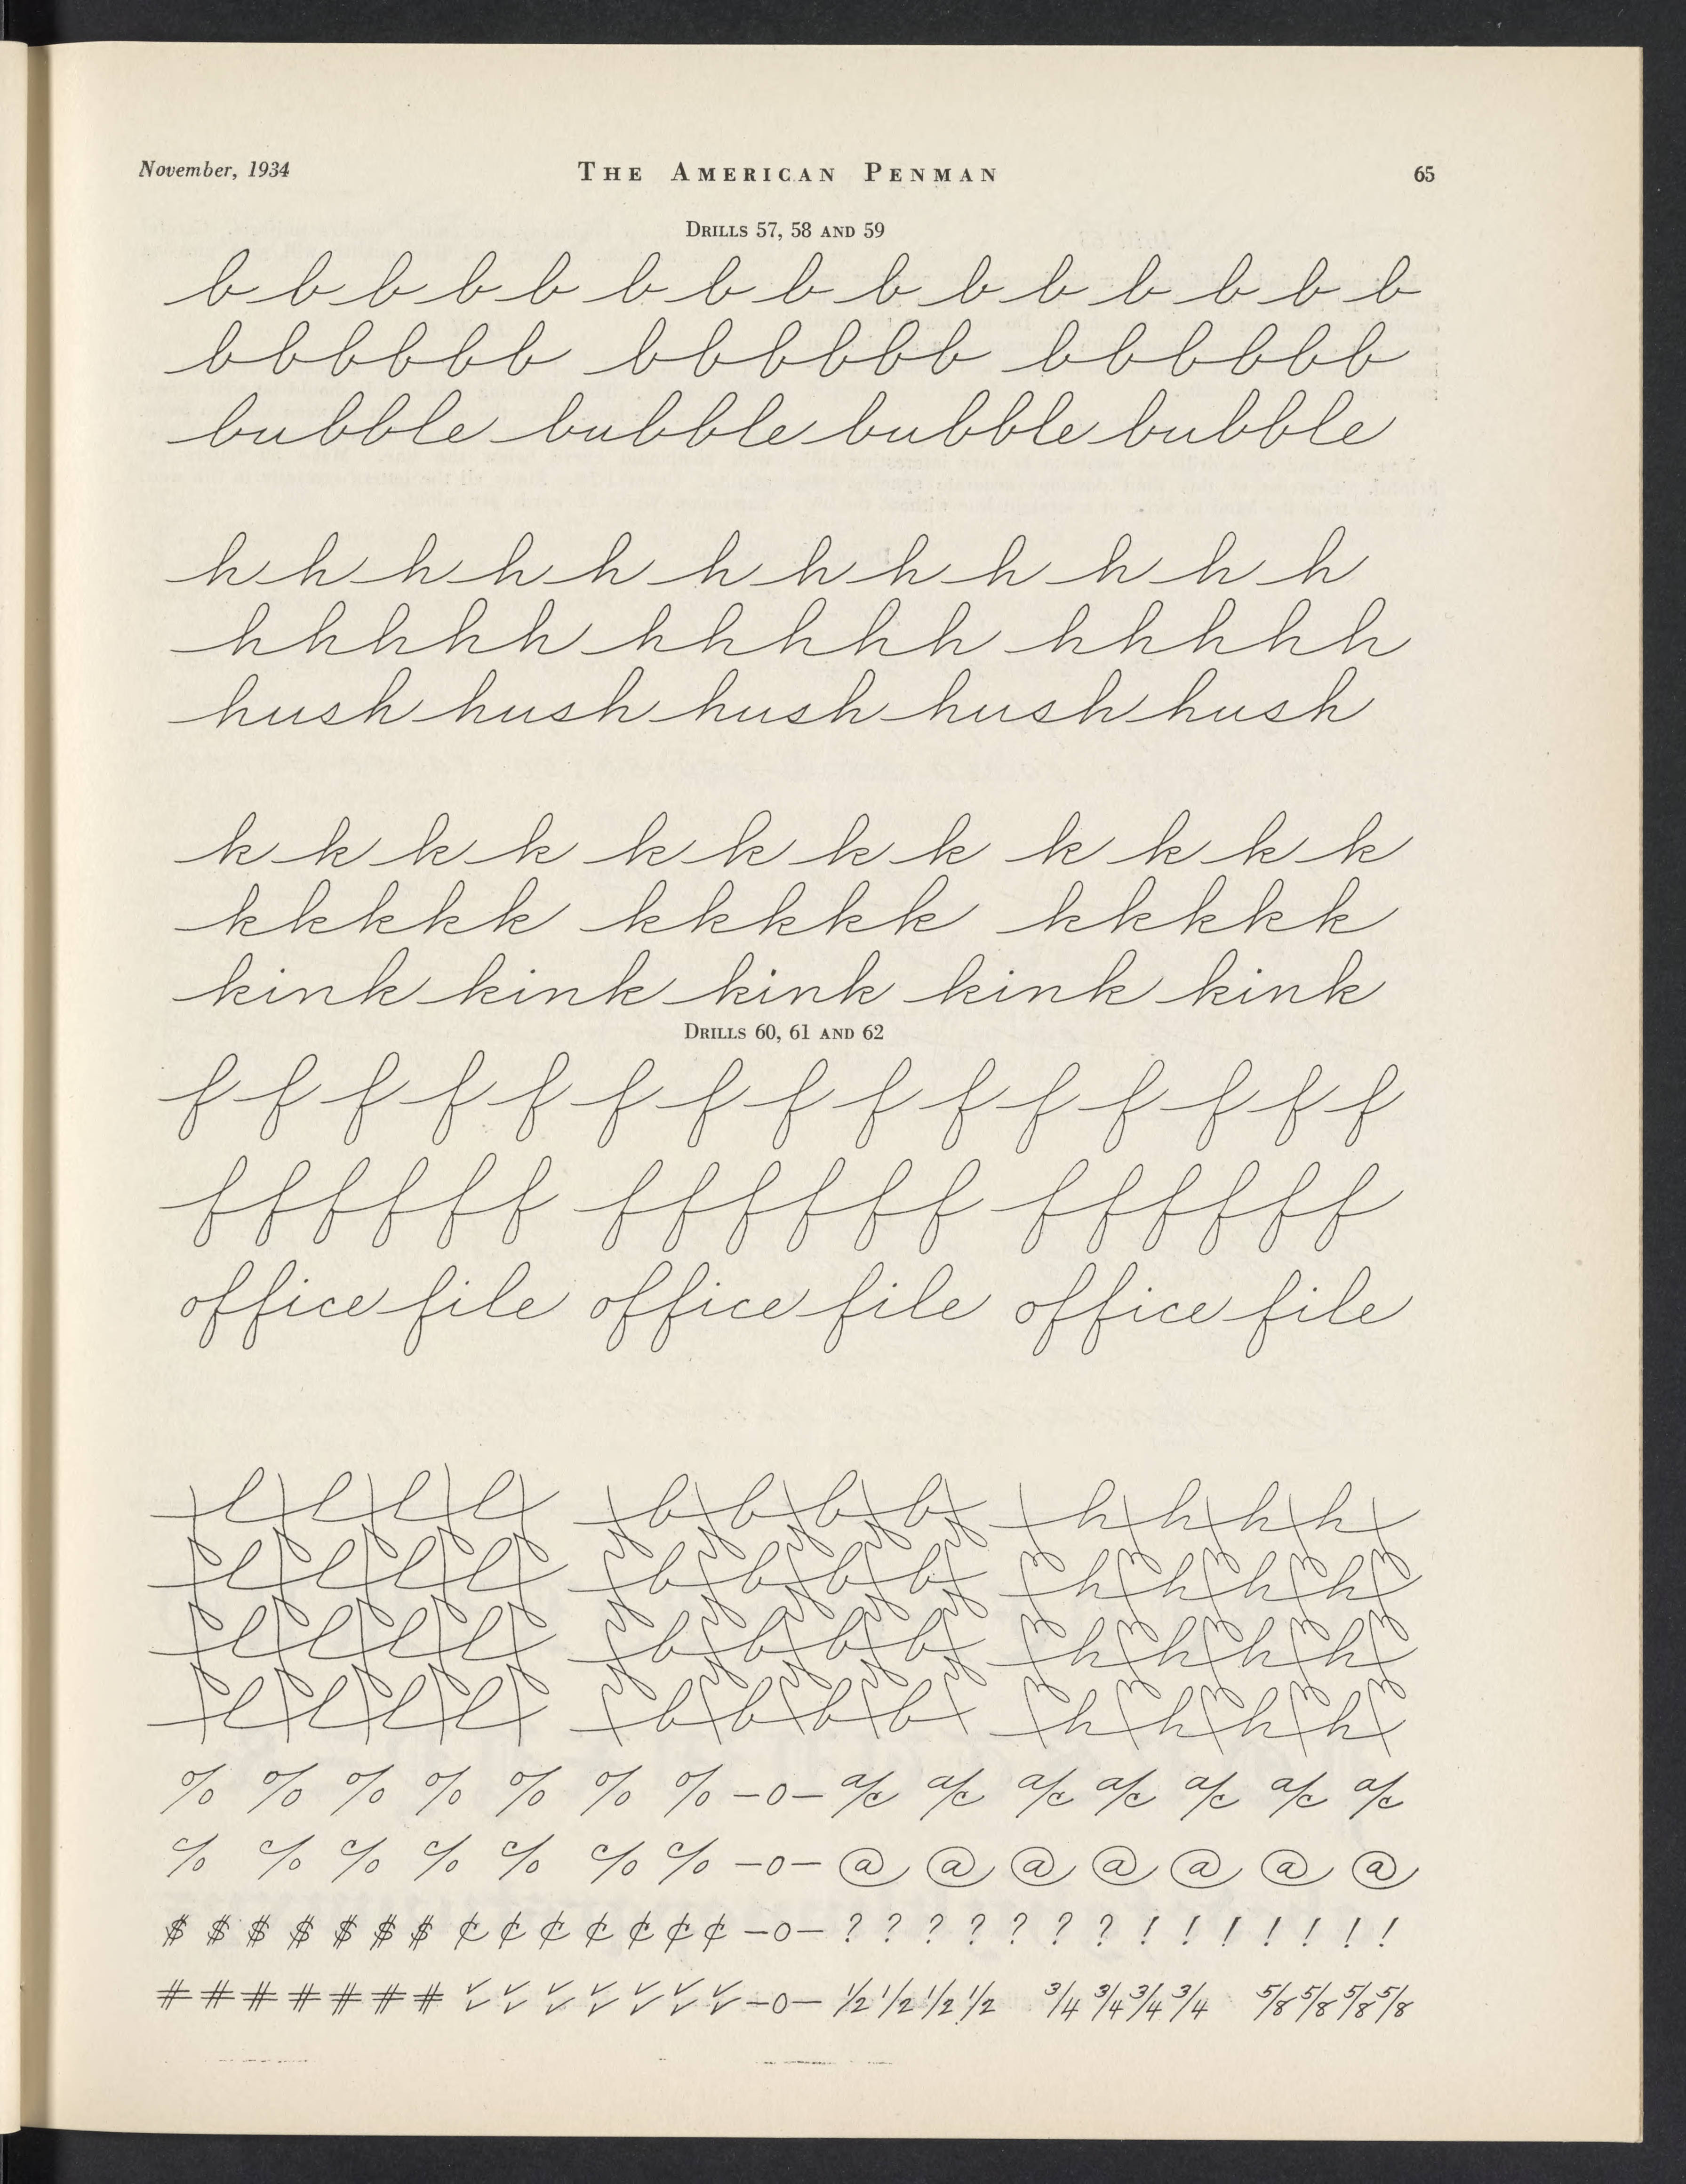 November, 1934 THE AMERICAN PENMAN 65
DRILLS 57, 58 AND 59
b b b b b b b b b b b b b b b
bbbbbb bbbbbb bbbbbb
bubble bubble bubble bubble
h h h h h h h h h h h h
hhhhh hhhhh hhhhh
hush hush hush hush hush
k k k k k k k k k k k k
kkkkk kkkkk kkkkk
kink kink kink kink kink
DRILLS 60, 61 AND 62
f f f f f f f f f f f f f f f
ffffff ffffff ffffff
office file office file office file
l l l l b b b b h h h h
l l l l b b b b h h h h
l l l l b b b b h h h h
l l l l b b b b h h h h
% % % % % % % —0— a/c a/c a/c a/c a/c a/c a/c
c/o c/o c/o c/o c/o c/o c/o —0— @ @ @ @ @ @ @
$ $ $ $ $ $ $ ¢ ¢ ¢ ¢ ¢ ¢ ¢ —0— ? ? ? ? ? ? ? ! ! ! ! ! ! !
# # # # # # # ✓ ✓ ✓ ✓ ✓ ✓ ✓ —0— 1/2 1/2 1/2 1/2 3/4 3/4 3/4 3/4 5/8 5/8 5/8 5/8